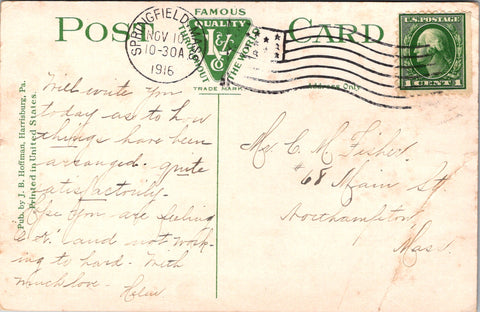 FAMOUS
QUALITY
THROUGHOUT THE WORLD
TRADE MARK
POST CARD
SPRINGFIELD, MASS.
NOV 10
10-30A
1916
U.S. POSTAGE
1 CENT 1
Address Only
Pub. by J. B. Hoffman, Harrisburg, Pa.
Printed in United States.
Will write you
today as to how
things have been
arranged. quite
satisfactorily.
you are feeling
and not work-
ing to hard. With
much love.
Mr C. M. Fisher
#68 Main St.
Northampton,
Mass.